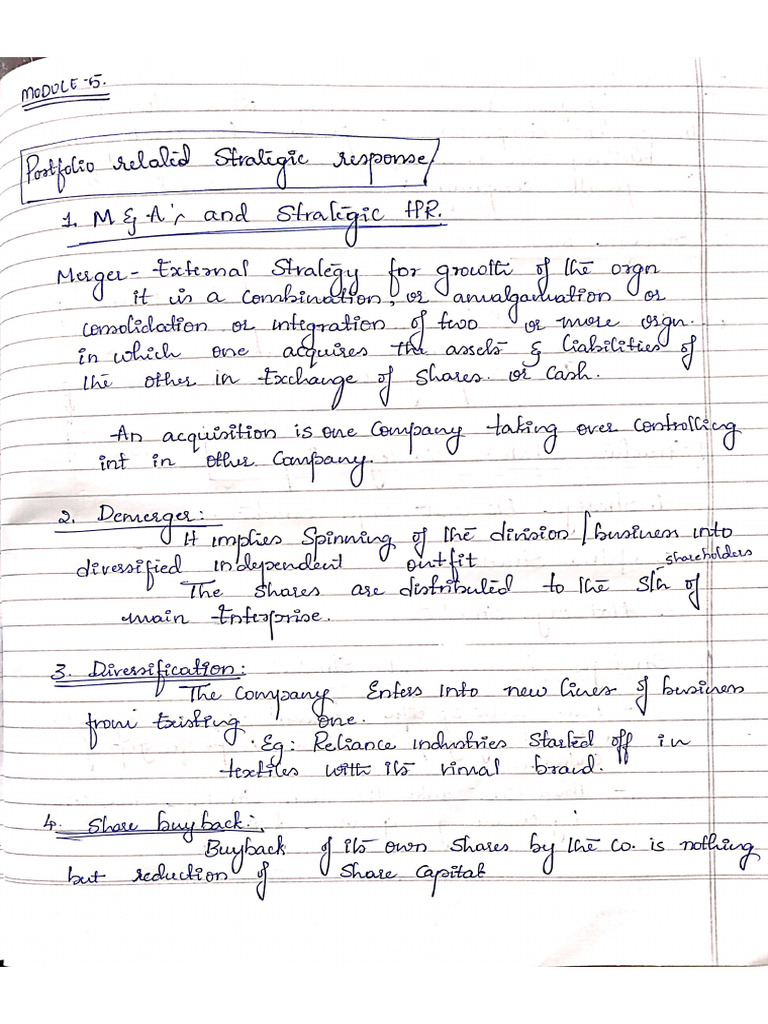 MODULE-5.
Portfolio related Strategic response/
1. M & A's and Strategic HR.
Merger - External Strategy for growth of the orgn
it is a combination, or amalgamation or
consolidation or integration of two or more orgn.
in which one acquires the assets & liabilities of
the other in Exchange of shares or cash.
An acquisition is one Company taking over controlling
int in other Company.
2. Demerger:
It implies Spinning of the division / business into
diversified independent outfit
shareholders
The shares are distributed to the S/h of
main Enterprise.
3. Diversification:
The Company Enters into new lines of business
from Existing one.
Eg: Reliance industries Started off in
textiles with its vimal brand.
4. Share buyback:
Buyback of its own shares by the Co. is nothing
but reduction of Share Capital